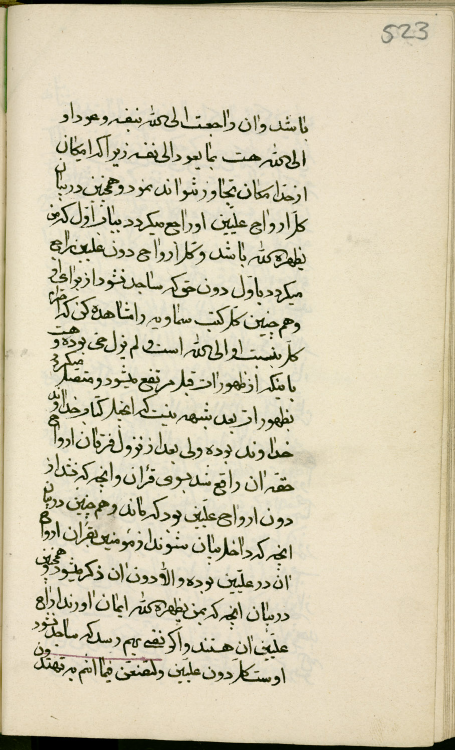 523
باشد و ان راجعت الی الله بنفسه و عود او
الی الله هست بما یعود الی نفسه زیرا که امکان
از حد امکان تجاوز نتواند نمود و همچنین در بیان
کل ارواح علیین اول راجع میگردد بباب اول که من
یظهره الله باشد و کل ارواح دون علیین راجع
میگردد باول دون حق که ساجد نشود از برای او
و هم چنین کل کتب سماویه را مشاهده کن که اخر
کل بنسبت او الی الله است و لم یزل حی بوده و هست
باینکه از ظهورات قبل مرتفع میشود و متصل میگردد
بظهورات بعد شبهه نیست که انجیل کتاب خداوند
خداوند بوده ولی بعد از نزول فرقان ارواح
حقه ان راجع شد بسوی قران و انچه که شد از
دون ارواح علیین بود که ماند و هم چنین در بیان
انچه که داخل بیان شوند از مؤمنین بقران ارواح
ان در علیین بوده و الا دون ان ذکر میشود و همچنین
در بیان انچه که بمن یظهره الله ایمان اورند ارواح
علیین ان هستند و اگر نفسی بهم رسد که ساجد نشود
اوست کل دون علیین و لتتقن فیما انتم به تهتدون